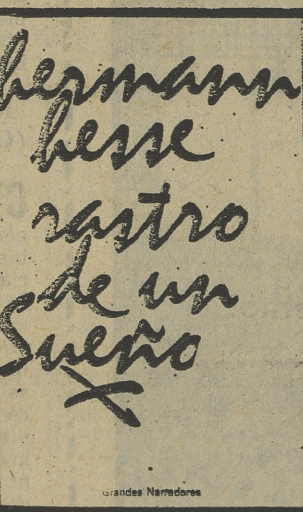 hermann
hesse
rastro
de un
Sueño
Grandes Narradores